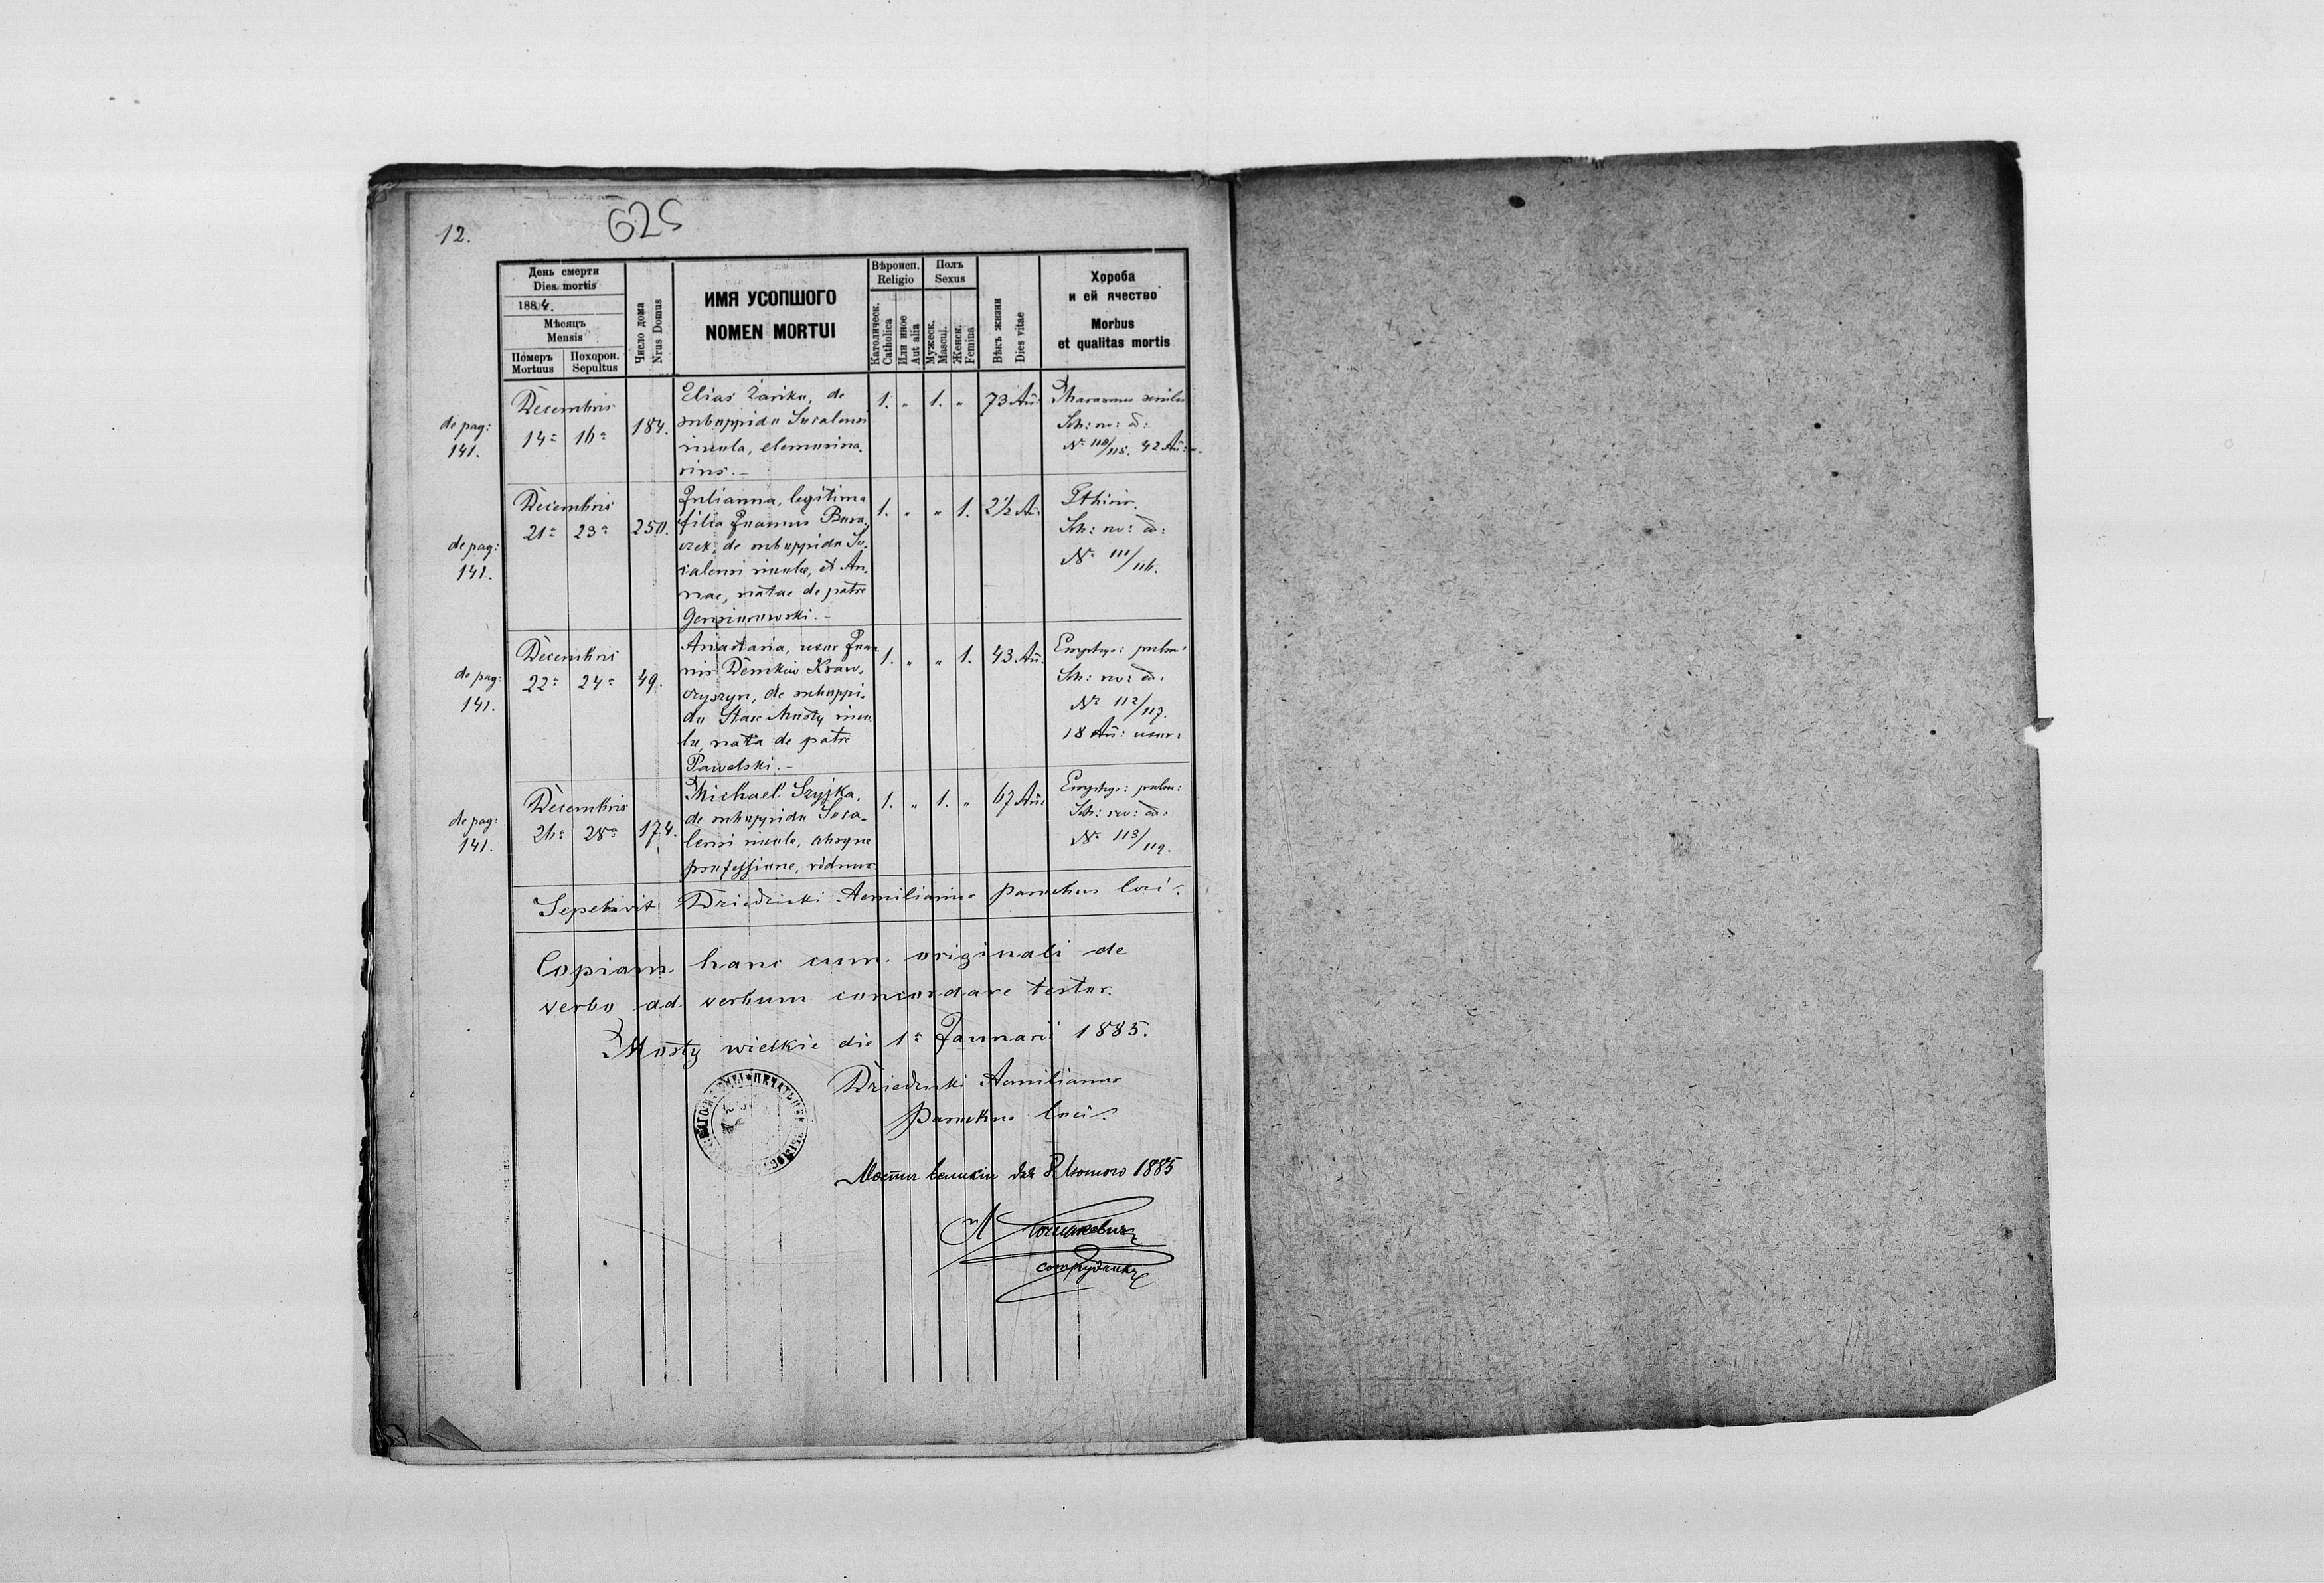 12.
625
День смерти
Dies mortis
1884.
Мѣсяцъ
Mensis
Померъ
Mortuus
Похорон.
Sepultus
Число дома
Nrus Domus
ИМЯ УСОПШОГО
NOMEN MORTUI
Вѣроисп.
Religio
Католическ.
Catholica
Или иное
Aut alia
Полъ
Sexus
Мужеск.
Mascul.
Женск.
Femina
Вѣкъ жизни
Dies vitae
Хороба
и ей ячество
Morbus
et qualitas mortis
de pag:
141.
Decembris
14a 16a
184.
Elias Żariko, de
suboppido Sucalensi
incola, elemosina-
rius.-
1. " 1. "
73 An:
Marasmus senilis
Sch: rev: ad:
No 110/115. 42 An:
de pag:
141.
Decembris
21a 23a
250.
Julianna, legitima
filia Joannis Bura-
czek, de suboppido Su-
calensi incolae, et An-
nae, natae de patre
1. " " 1.
2 1/2 A:
Phtisis.
Sch: rev: ad:
No 111/116.
de pag:
141.
Decembris
22a 24a
49.
Anastasia, uxor Joan
nis Demkiw Kraw-
czyszyn, de suboppi-
do Stare Mosty inco
lae, nata de patre
Pawelski.-
1. " " 1.
43 An:
Emphys: pulm:
Sch: rev: ad:
No 112/117.
18 An: uxor:
de pag:
141.
Decembris
26a 28a
174.
Michael Szyjka,
de suboppido Suca-
lensi incola, absque
professione, viduus
1. " 1. "
67 An:
Emphys: pulm:
Sch: rev: ad:
No 113/119.
Sepelivit Dziedzicki Aemilianus parochus loci.
Copiam hanc cum originali de
verbo ad verbum concordare testor.
Mosty wielkie die 1a Januarii 1885.
Dziedzicki Aemilianus
Parochus loci.
Мости великіи дня 8 Лютого 1885
сотрудникъ